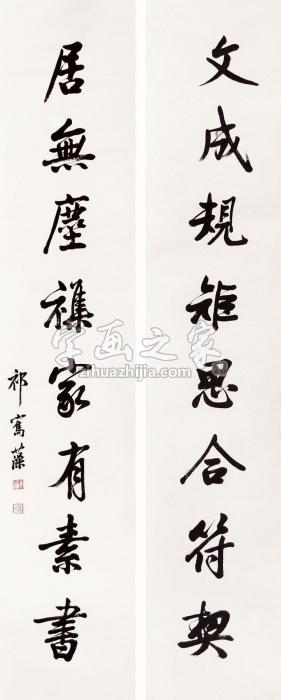 文成規矩思合符契
居無塵襍家有素書
祁寯藻
字画之家
zihuazhijia.com